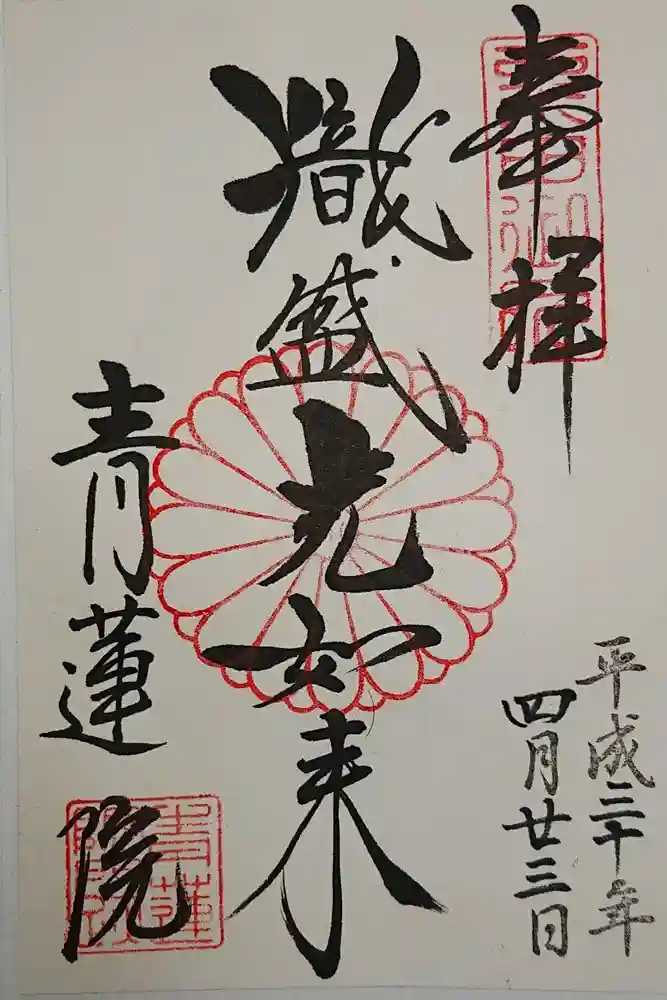 奉拝
平成三十年
四月廿三日
熾盛光如来
青蓮院